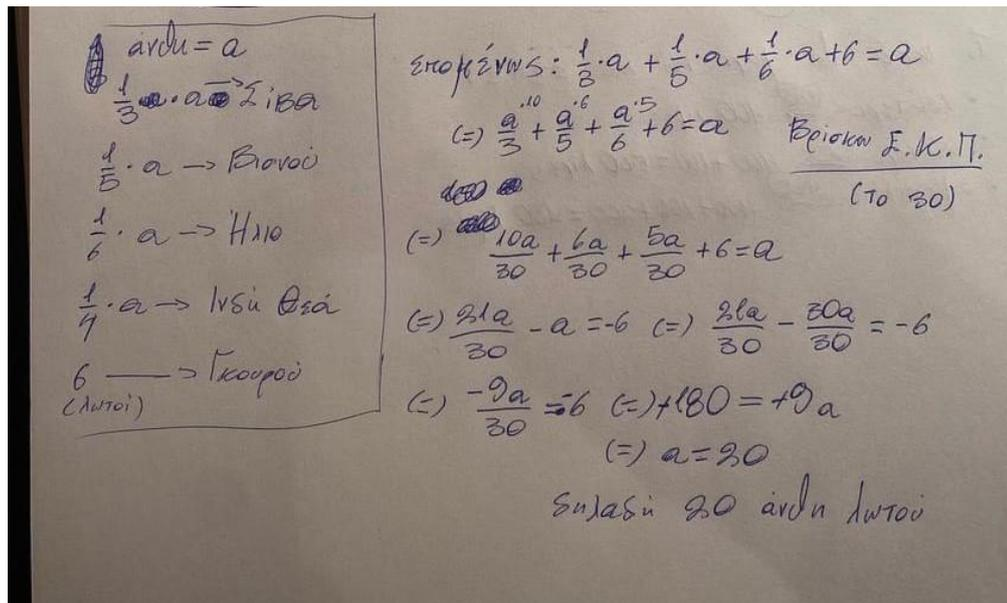 άνθη = a
1/3 · a → Σίβα
1/5 · a → Βισνού
1/6 · a → Ήλιο
1/4 · a → Ινδή Θεά
6 → Γκουρού
(λωτοί)
επομένως: 1/3 · a + 1/5 · a + 1/6 · a + 6 = a
(=) a/3 ·10 + a/5 ·6 + a/6 ·5 + 6 = a
Βρίσκω Ε.Κ.Π.
(το 30)
(=) 10a/30 + 6a/30 + 5a/30 + 6 = a
(=) 21a/30 - a = -6 (=) 21a/30 - 30a/30 = -6
(=) -9a/30 = -6 (=) +180 = +9a
(=) a = 20
δηλαδή 20 άνθη λωτού